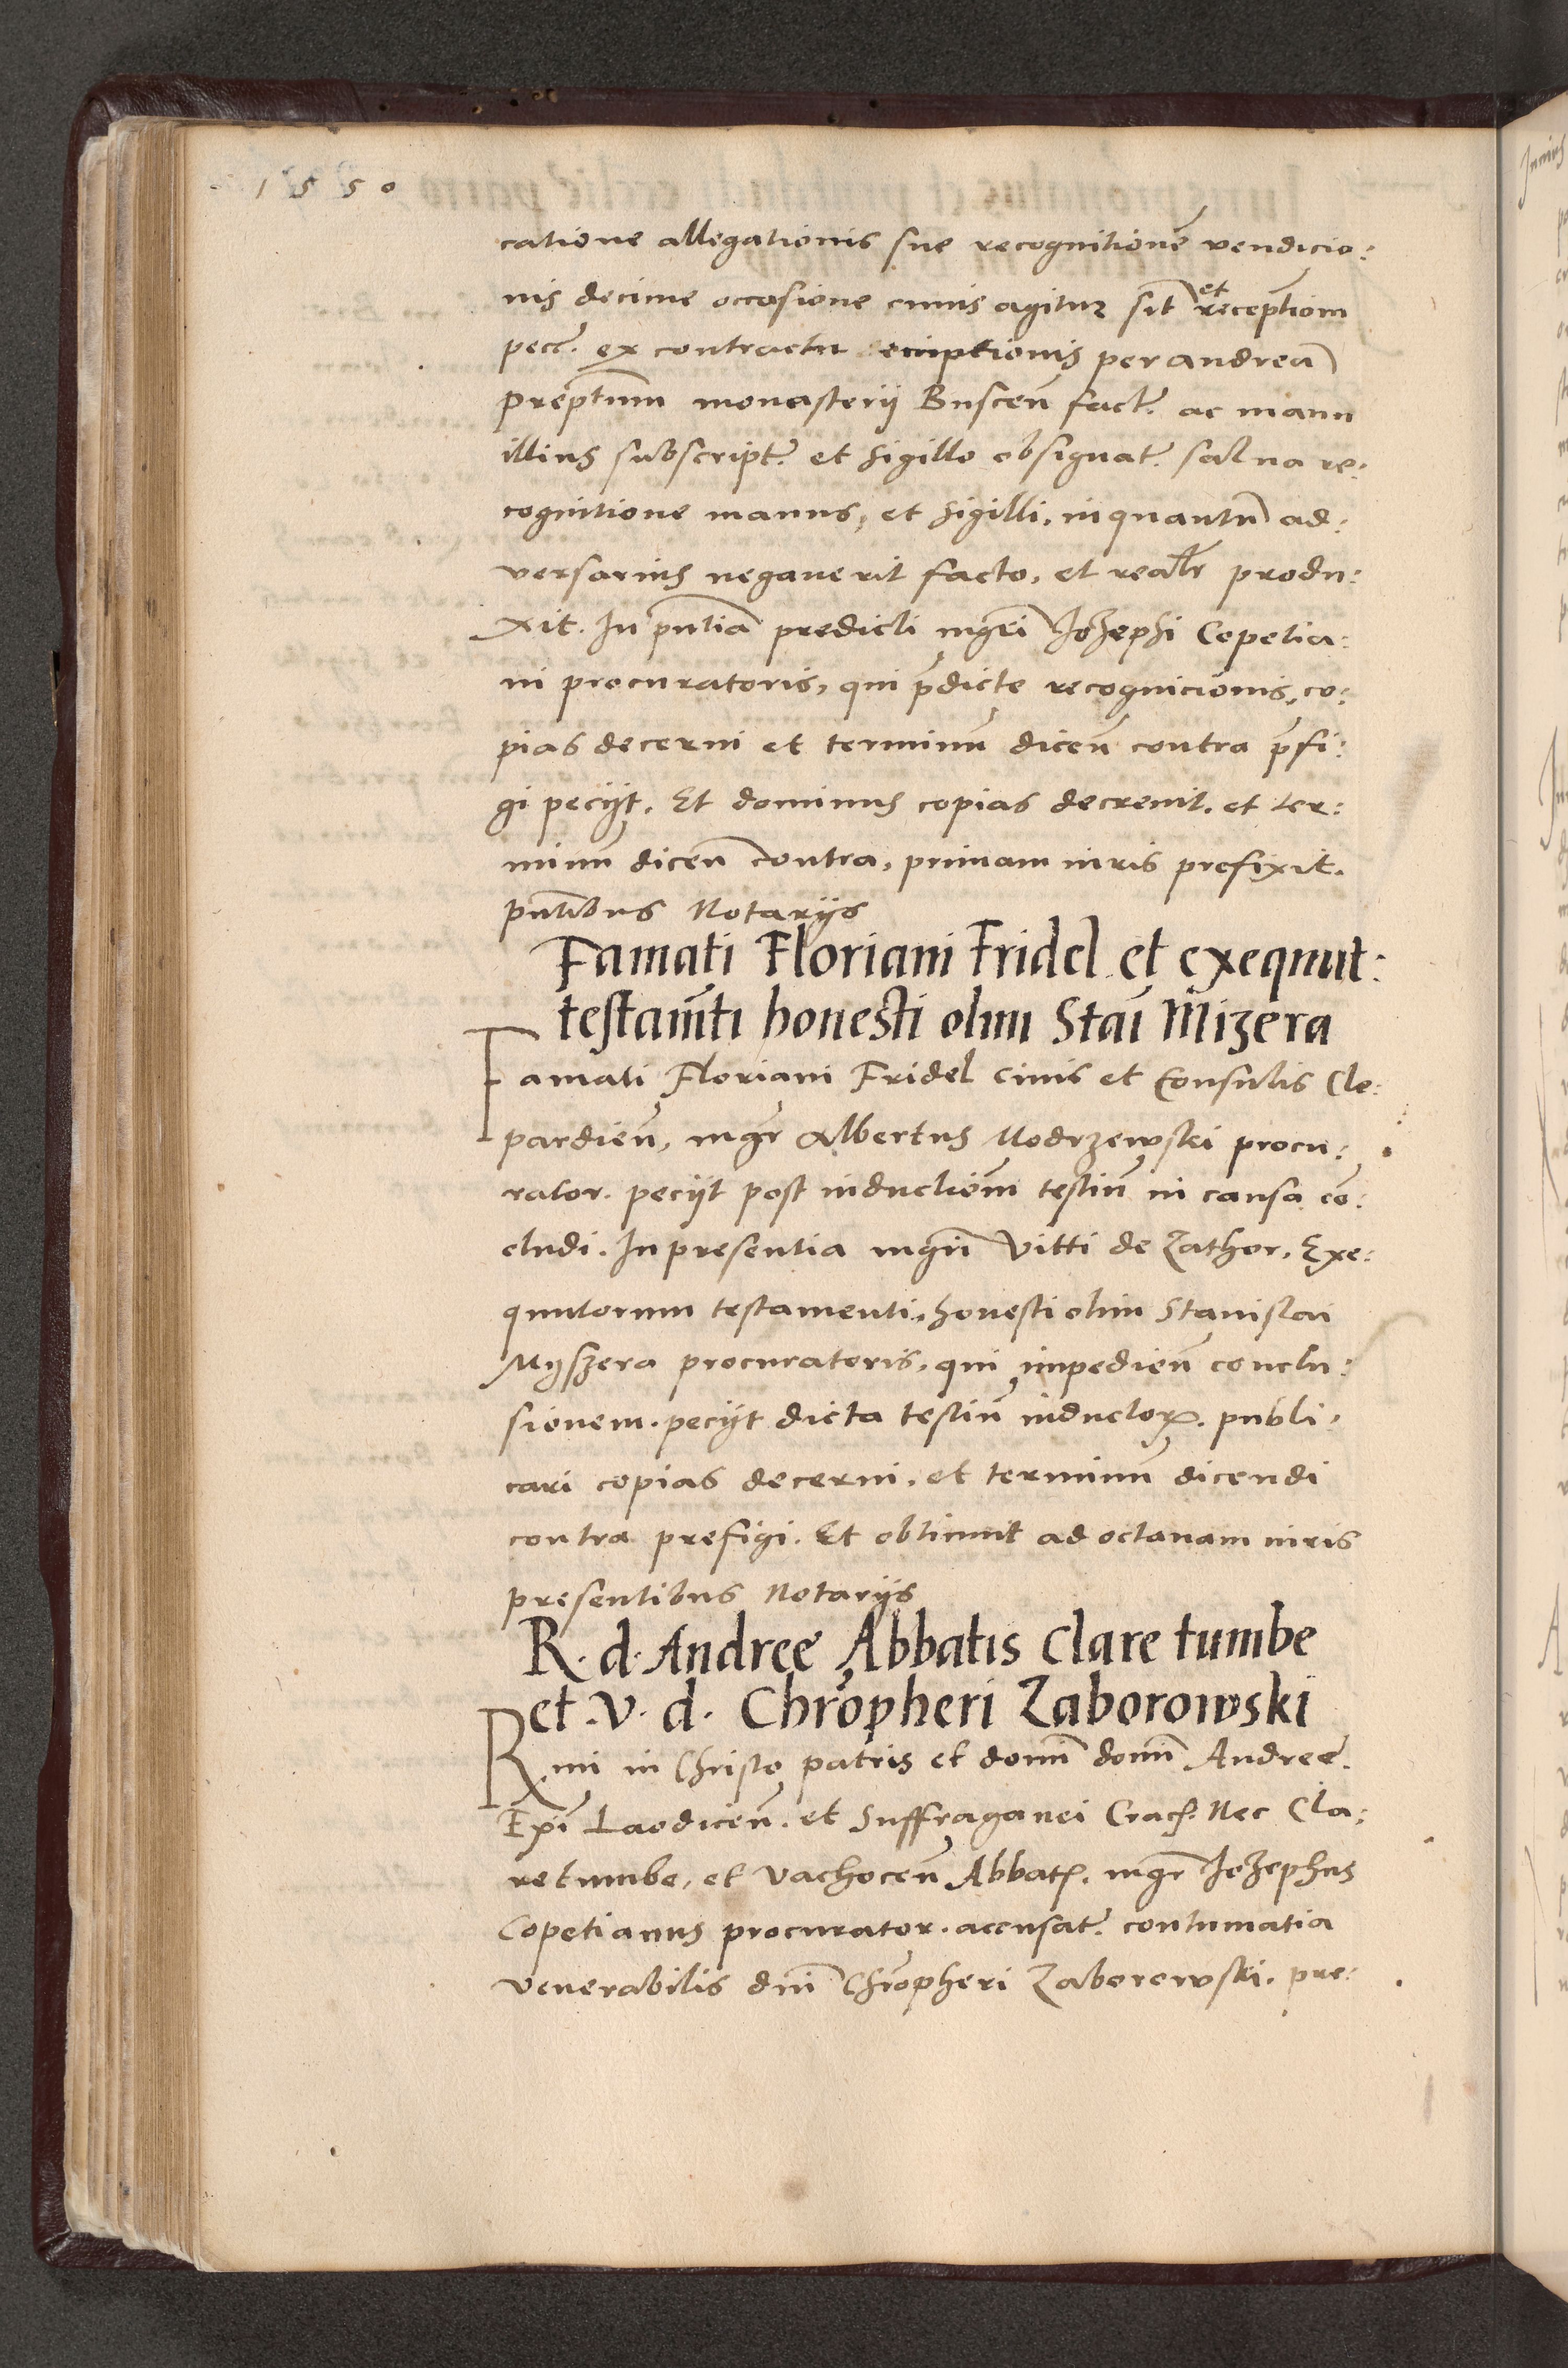 1550
catione allegationis sue recognitionē vendicio:
nis decime occasione cuius agitur sit et receptiom
pecc. ex contractu emptionis per andreā
preptum monasterij Buscen̄ fact. ac manu
illius subscript. et sigillo obsignat. salua re.
cognitione manus, et sigilli, inquantū ad:
versarius negauerit facto, et realr produ:
xit. In pn̄tia predicti mgri Jozephi Copetia:
ni procuratoris, qui p̄dicte recognicionis, co:
pias decerni et terminū dicen̄ contra p̄fi:
gi pecijt. Et dominus copias decreuit. et ter:
minū dicen̄ contra, primam iuris prefixit.
pn̄tibus Notarijs
Famati Floriani Fridel et exequut:
testam̄ti honesti olim Stai Mizera
Famati Floriani Fridel ciuis et Consulis Cle:
pardien̄, mgr Albertus Modrzewski procu:
rator. pecijt post inductiom̄ testiū in causa cō:
cludi. In presentia mgri Vitti de Zathor. Exe:
qutorum testamenti, honesti olim Stanislai
Myszera procuratoris, qui impedien̄ conclu:
sionem. pecijt dicta testiū inductor. publi.
cari copias decerni, et terminū dicendi
contra prefigi. Et obtinuit ad octauam iuris
presentibus Notarijs
R. d. Andree Abbatis Clare tumbe
et. V. d. Chrōpheri Zaborowski
Rmi in Christo patris et domī domī Andree.
Epī Laodicen̄. et Suffraganei Crac. Nec Cla:
retumbe, et Vachocen̄ Abbat. mgr Jozephus
Copetianus procurator. accusat. contumatia
venerabilis dnī Chrōpheri Zaborowski. pre: